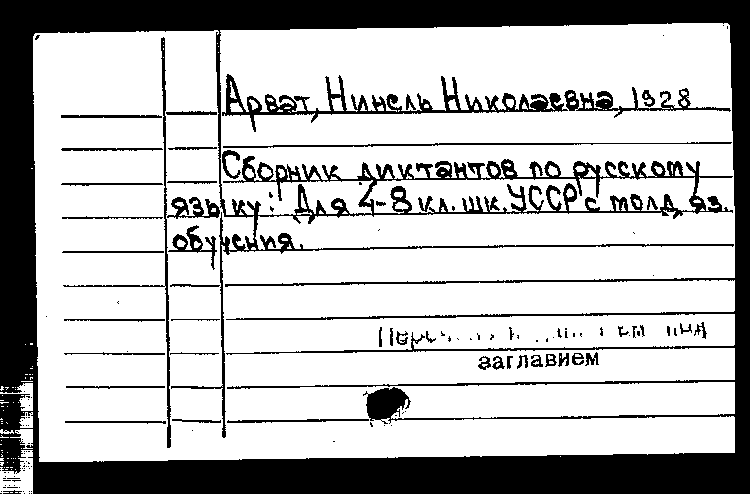 Арват, Нинель Николаевна, 1928
Сборник диктантов по русскому
языку: Для 4-8 кл. шк. УССР с молд. яз.
обучения.
под
заглавием